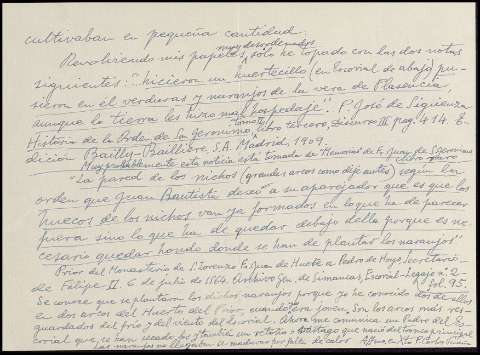 cultivaban en pequeña cantidad.
Revolviendo mis papeles, muy desordenados, solo he topado con las dos notas
siguientes: "hicieron un huertecillo (en Escorial de abajo) pu-
sieron en él verduras y naranjos de la vera de Plasencia,
aunque la tierra les hizo mal hospedaje". P. José de Sigüenza
Historia de la Orden de San Geronimo, tomo libro tercero, Discurso III pag. 414. E-
dicion Bailly-Bailliere, S.A. Madrid, 1909.
Muy probablemente esta noticia está tomada de Memorias de Fr. Juan de S. Jeronimo
"La pared de los nichos (grandes arcos como dejé antes) según la
orden que Juan Bautista dexó a su aparejador que es que los
huecos de los nichos van ya formados en lo que ha de parecer
fuera sino lo que ha de quedar debajo della porque es ne-
cesario quedar hondo donde se han de plantar los naranjos"
Prior del Monasterio de S. Lorenzo Fr. Juan de Huete a Pedro de Hoyo, Secretario
de Felipe II. 6 de julio de 1564. Archivo Gen. de Simancas, Escorial-Legajo nº 2-
fol. 95.
Se conoce que se plantaron los dichos naranjos porque yo he conocido dos de ellos
en dos arcos del Huerto del Prior, cuando era joven. Son los arcos más res-
guardados del frío y del viento del Escorial. Ahora me comunica un Padre del Es-
corial que se han secado,
Las naranjas no llegaban a madurar por falta de calor.